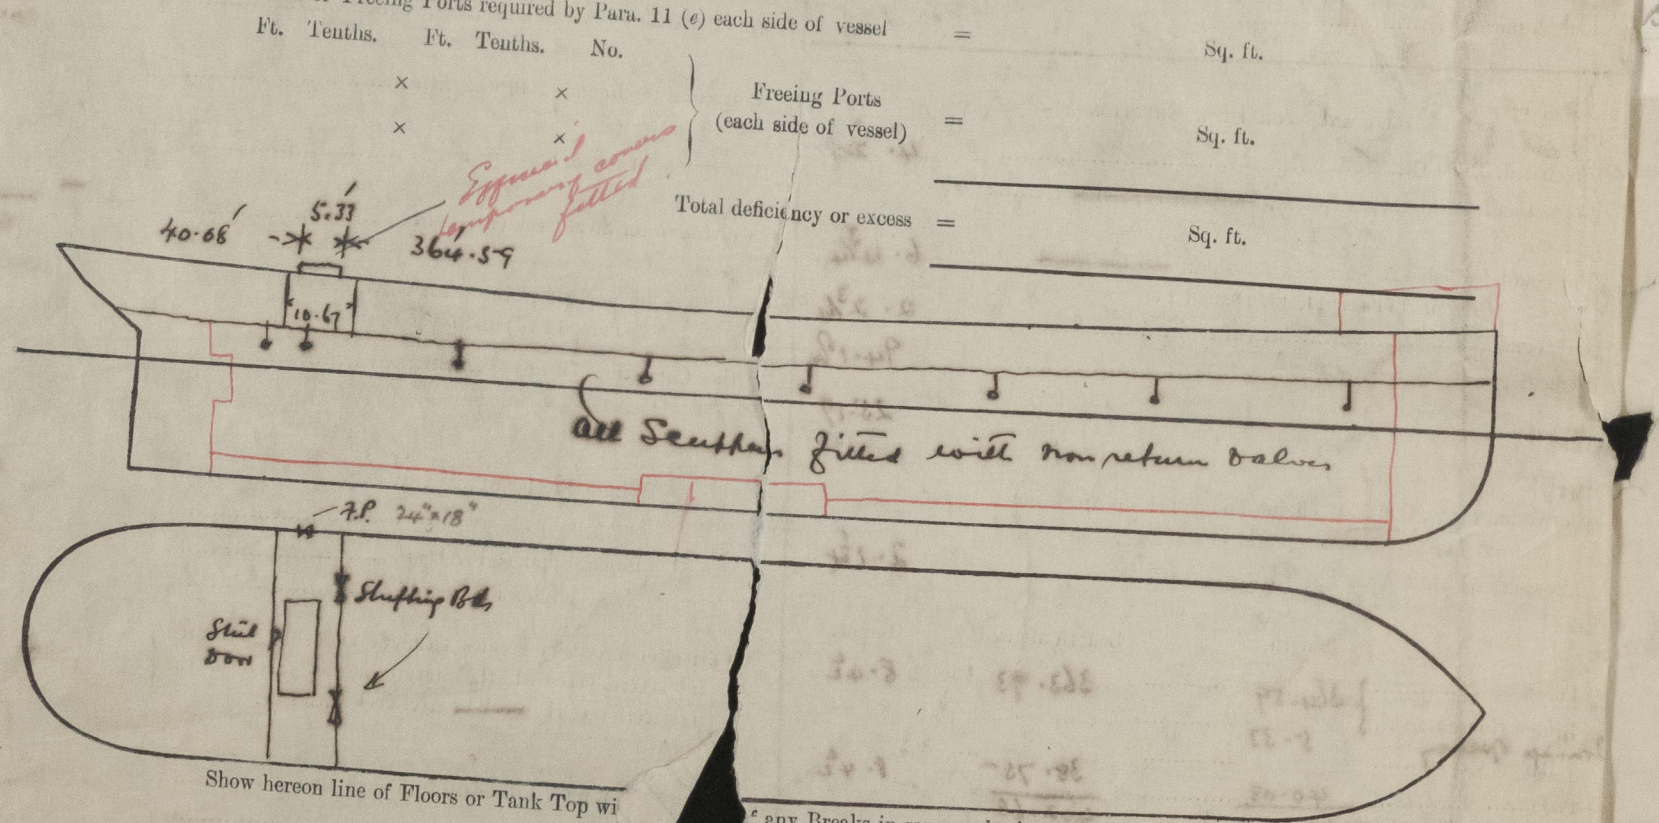 Freeing Ports required by Para. 11 (e) each side of vessel = Sq. ft.
Ft. Tenths. Ft. Tenths. No.
× ×
Freeing Ports
(each side of vessel) = Sq. ft.
× ×
temporary covers
fitted
Total deficiency or excess = Sq. ft.
40.08' 5.33' 364.59
10.67
All Scuppers fitted with non return valves
F.P. 24" x 18"
Shifting Bds
Steel
Door
Show hereon line of Floors or Tank Top wi
any Breaks in